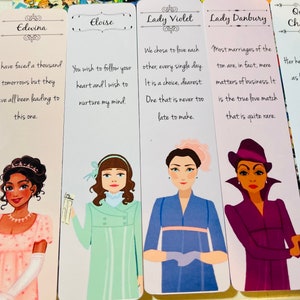 Edwina
have faced a thousand
tomorrows but they
ve all been leading to
this one.
Eloise
You wish to follow your
heart and I wish to
nurture my mind.
Lady Violet
We chose to love each
other, every single day.
It is a choice, dearest.
One that is never too
late to make.
Lady Danbury
Most marriages of the
ton are, in fact, mere
matters of business. It
is the true love match
that is quite rare.
Qu
Ch
Her he